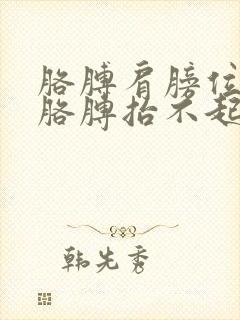 胳膊肩膀位
胳膊抬不起
韩先秀